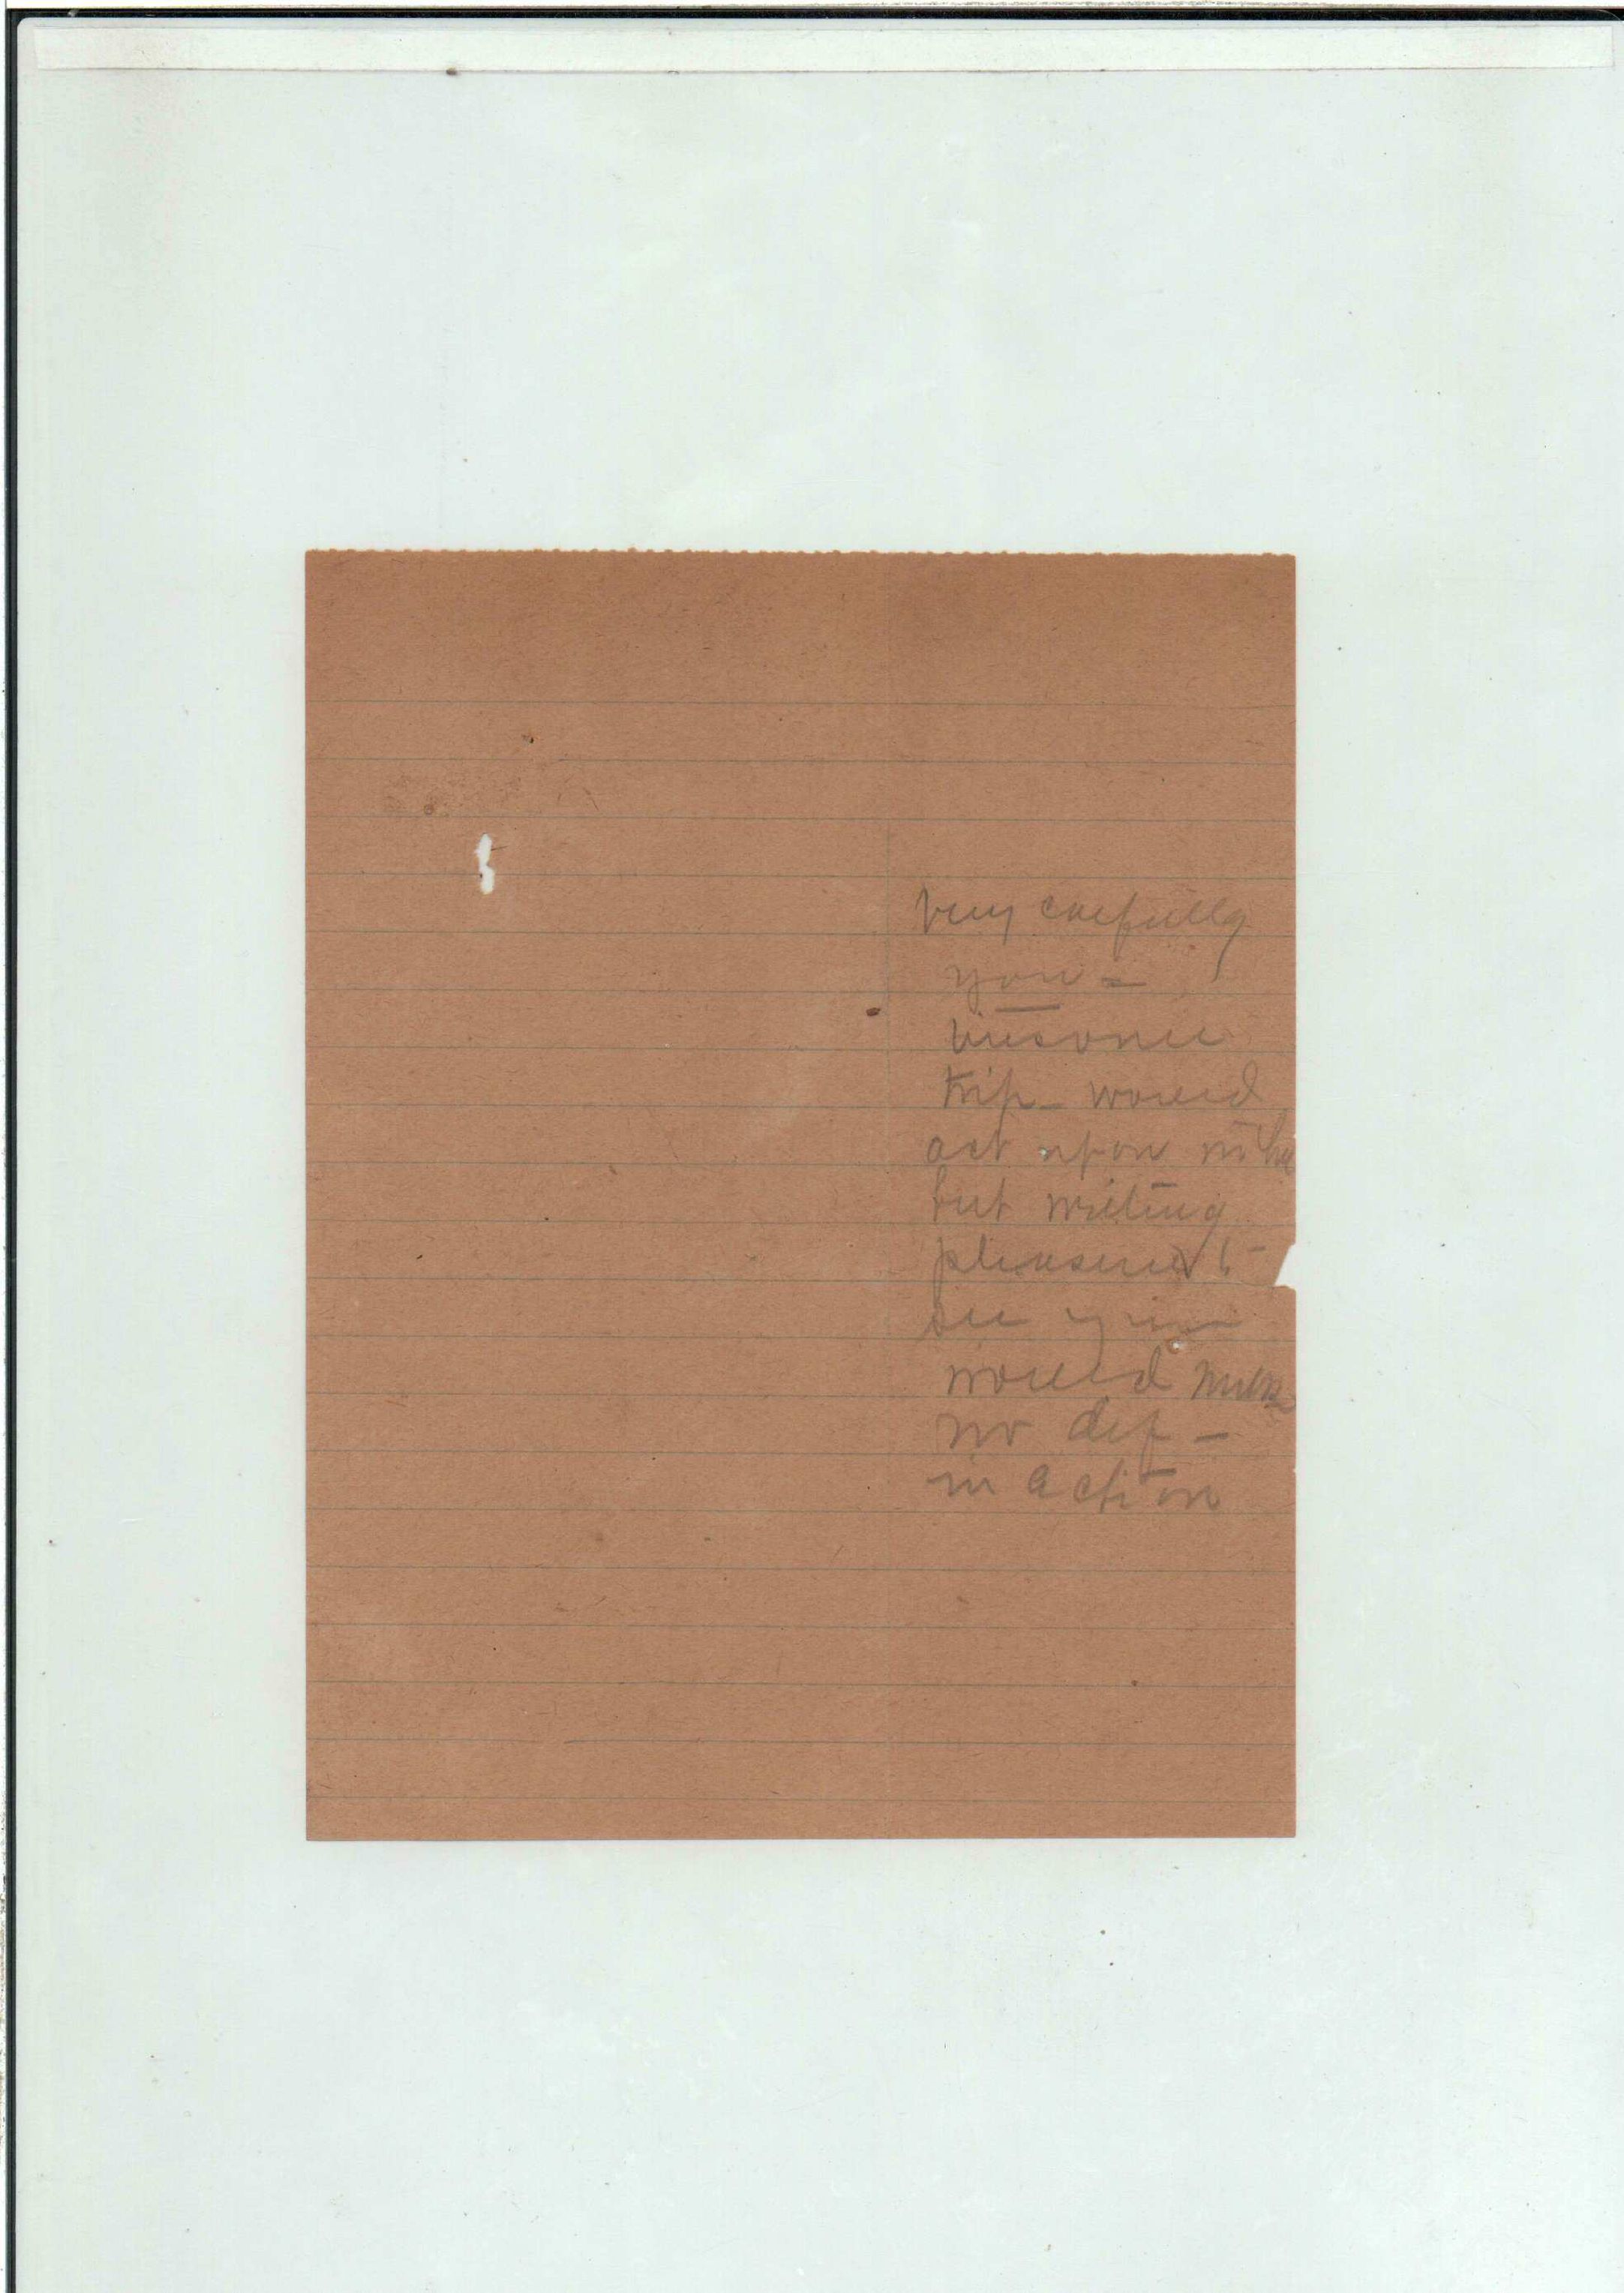 very carefully
you =
trip - would
act upon
but writing
pleasure
see
would make
no dif -
in action